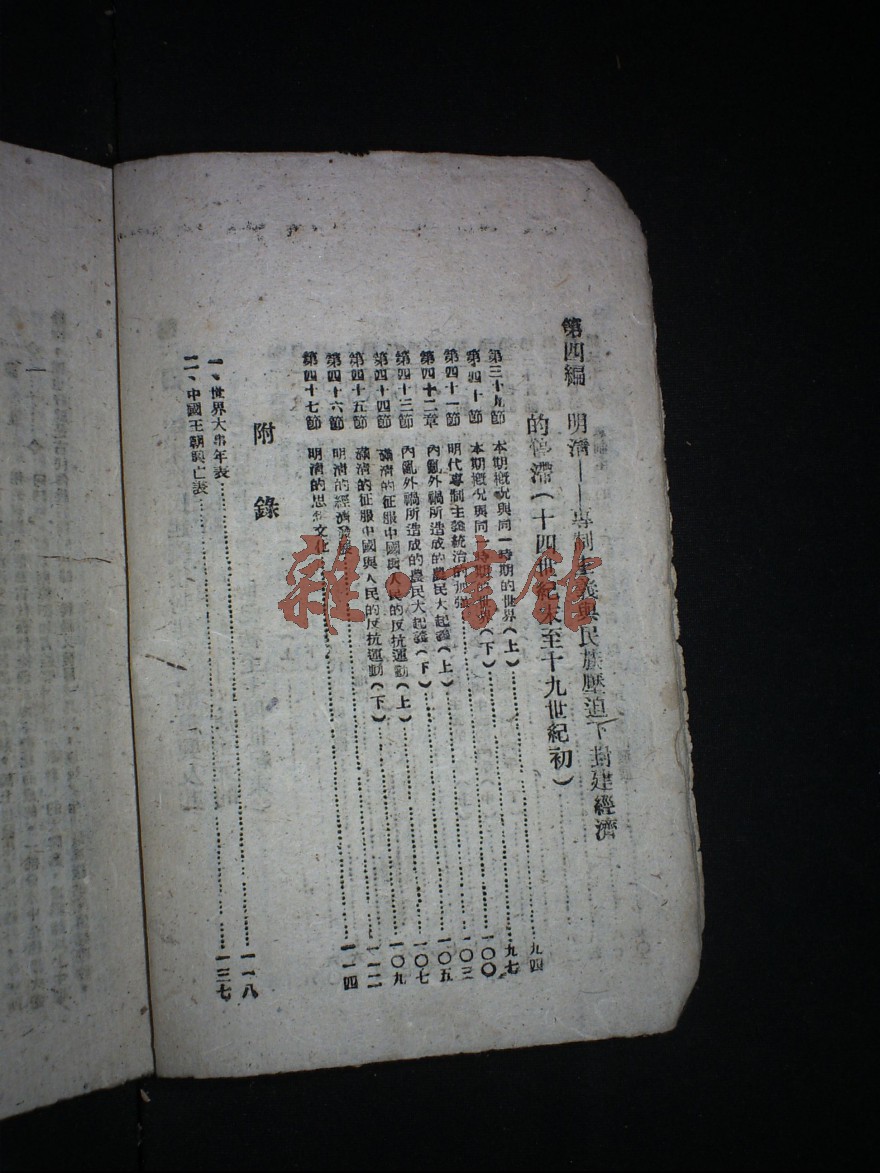 第四編　明清——專制主義與民族壓迫下封建經濟
的停滯（十四世紀末至十九世紀初）
第三十九節　本期概況與同一時期的世界（上）……九四
第四十節　本期概況與同一時期的世界（下）……九七
第四十一節　明代專制主義統治的加強……一〇〇
第四十二章　內亂外禍所造成的農民大起義（上）……一〇三
第四十三節　內亂外禍所造成的農民大起義（下）……一〇五
第四十四節　滿清的征服中國與人民的反抗運動（上）……一〇七
第四十五節　滿清的征服中國與人民的反抗運動（下）……一〇九
第四十六節　明清的經濟發展……一一二
第四十七節　明清的思想文化……一一四
附　錄
一、世界大事年表……一一八
二、中國王朝興亡表……一三七
雜·書館